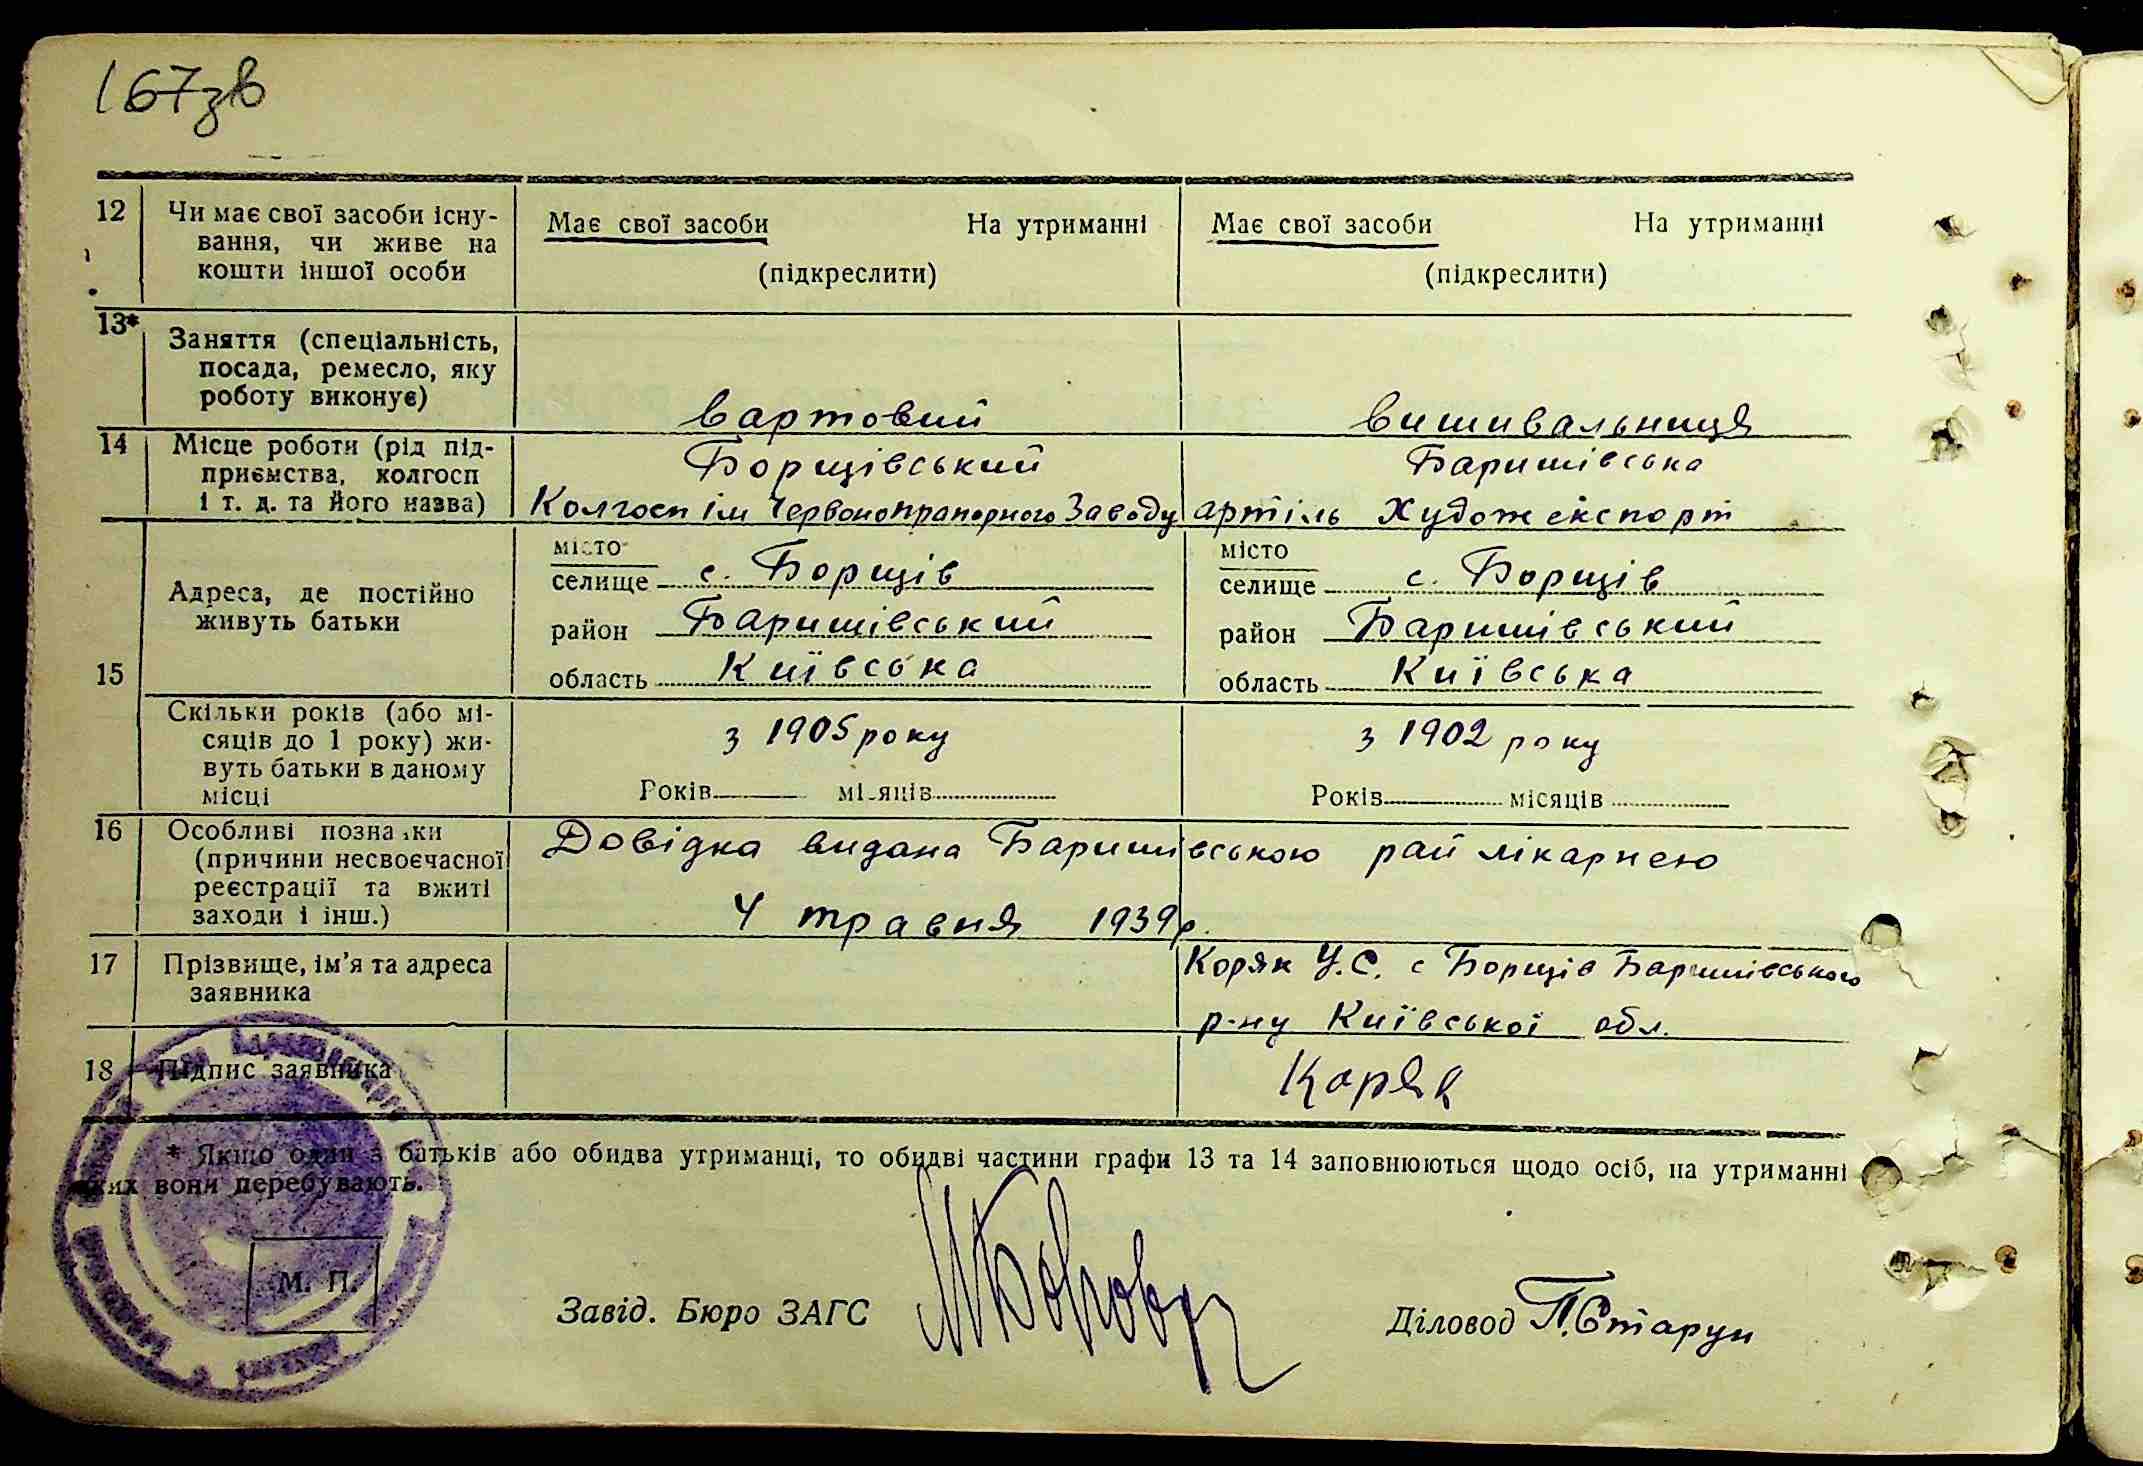 167зв
12 Чи має свої засоби існу-
вання, чи живе на
кошти іншої особи
Має свої засоби На утриманні
(підкреслити)
Має свої засоби На утриманні
(підкреслити)
13* Заняття (спеціальність,
посада, ремесло, яку
роботу виконує)
вартовий
вишивальниця
14 Місце роботи (рід під-
приємства, колгосп
і т. д. та його назва)
Борщівський
Колгосп ім Червонопрапорного Заводу
Баришівська
артіль Художекспорт
15
Адреса, де постійно
живуть батьки
місто
селище с. Борщів
район Баришівський
область Київська
місто
селище с. Борщів
район Баришівський
область Київська
Скільки років (або мі-
сяців до 1 року) жи-
вуть батьки в даному
місці
з 1905 року
Років місяців
з 1902 року
Років місяців
16 Особливі познаки
(причини несвоєчасної
реєстрації та вжиті
заходи і інш.)
Довідка видана Баришівською райлікарнею
4 травня 1939 р.
17 Прізвище, ім'я та адреса
заявника
Коряк У.С. с Борщів Баришівського
р-ну Київської обл.
18 Підпис заявника
Коряк
* Якщо один з батьків або обидва утриманці, то обидві частини графи 13 та 14 заповнюються щодо осіб, на утриманні
яких вони перебувають.
М. П.
Завід. Бюро ЗАГС
Діловод П. Старун